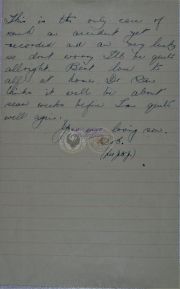 This is the only case of
such an accident yet
recorded and am very lucky
so dont worry I'll be quite
allright. Best love to
all at home. Dr
thinks it will be about
seven weeks before I am quite
well again.
Your ever loving son.